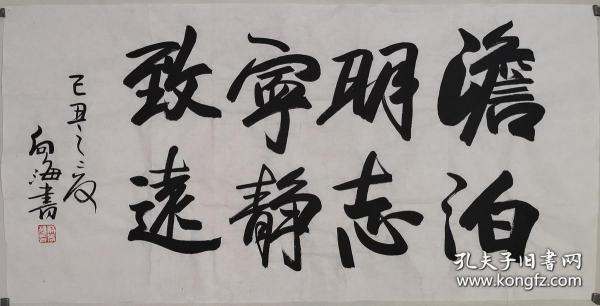 澹泊
明志
寧静
致遠
己丑之夏
向海書
孔夫子旧書网
www.kongfz.com